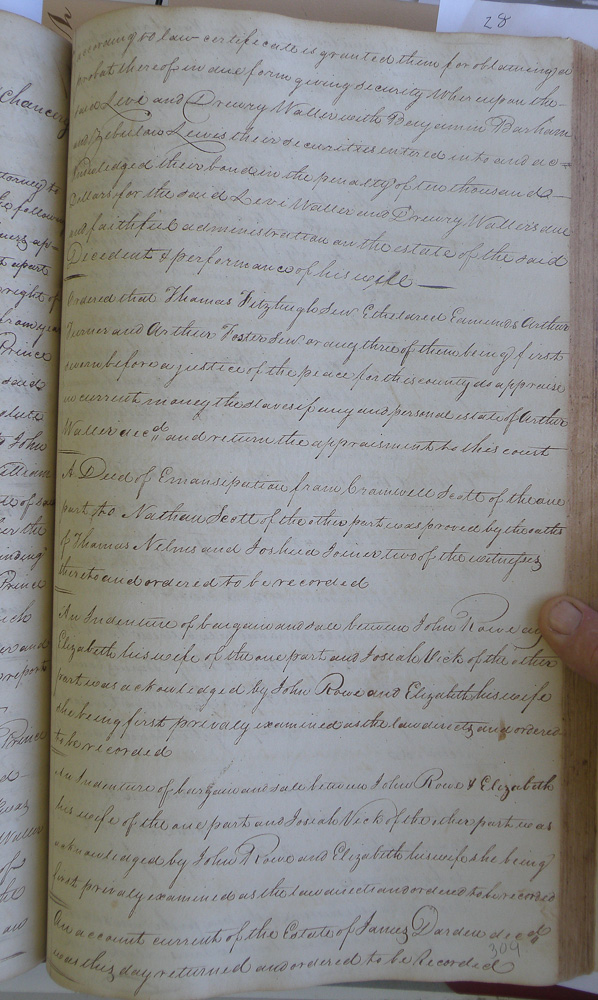 28
according to law certificate is granted them for obtaining a
probat thereof in due form giving security Wherupon the
said Levi and Drewry Waller with Benjamin Barham
and Zebulon Lewis their securities entered into and ac=
knowledged their bond in the penalty of ten thousand do-
llars for the said Levi Waller and Drewry Wallers due
and faithful administration on the estate of the said
Decedent & performance of his will —
Ordered that Thomas Fitzhugh Senr Etheldred Edmunds Arthur
Turner and Arthur Foster Senr or any three of them being first
sworn before a justice of the peace for this county do appraise
in current money the slaves if any and personal estate of Arthur
Waller decd and return the appraisment to this court
A Deed of Emansipation from Cromwell Scott of the one
part to Nathan Scott of the other part was proved by the oaths
of Thomas Nelms and Joshua Joiner two of the witnesses
thereto and ordered to be recorded
An Indenture of bargain and sale between John Rowe and
Elizabeth his wife of the one part and Josiah Vick of the other
part was acknowledged by John Rowe and Elizabeth his wife
she being first privaly examined as the law directs and ordered
to be recorded
An Indenture of bargain and sale between John Rowe & Elizabeth
his wife of the one part and Josiah Vick of the other part was
acknowledged by John Rowe and Elizabeth his wife she being
first privaly examined as the law directs and ordered to be recorded
An account current of the Estate of James Darden decd
was this day returned and ordered to be Recorded
304
Chancery
Prince
said
to John
Prince
and
report
Prince
Waller
of